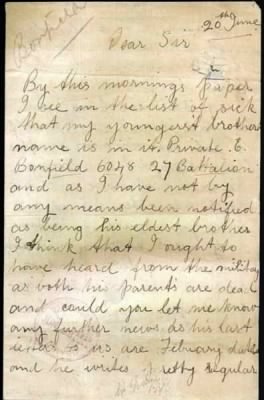 Bonfield
20th June
Dear Sir
By this mornings paper
I see in the list of sick
that my youngerit brothers
name is in it. Private. C.
Bonfield 6048 27 Battalion
and as I have not by
any means been notified
as being his eldest brother
I think that I ought to
have heard from the military
as both his parents are dead
and could you let me know
any further news as his last
letters to us are Febuary dated
and he writes pretty regular